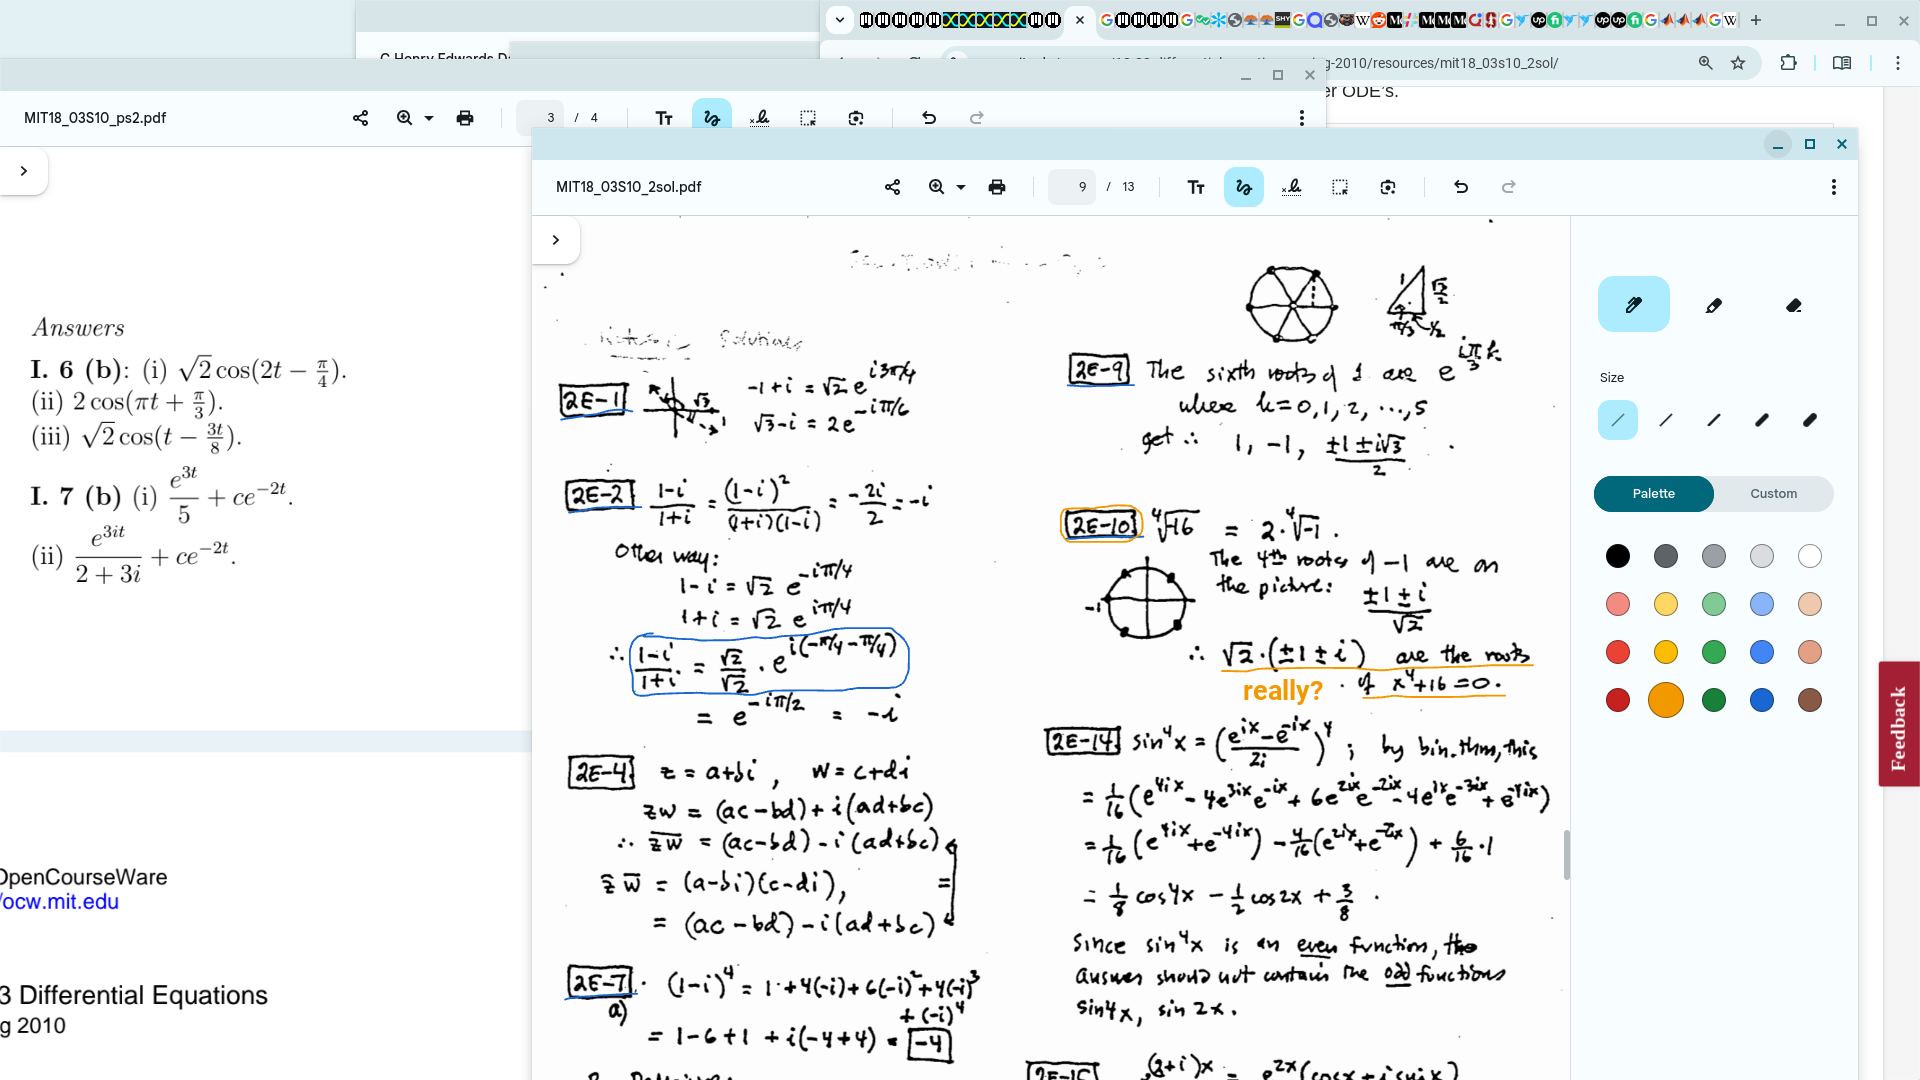 G Henry Edwards D
g-2010/resources/mit18_03s10_2sol/
er ODE's.
MIT18_03S10_ps2.pdf
3 / 4
MIT18_03S10_2sol.pdf
9 / 13
Answers
I. 6 (b): (i) √2 cos(2t − π/4).
(ii) 2 cos(πt + π/3).
(iii) √2 cos(t − 3t/8).
I. 7 (b) (i) e^{3t}/5 + ce^{−2t}.
(ii) e^{3it}/(2 + 3i) + ce^{−2t}.
OpenCourseWare
/ocw.mit.edu
3 Differential Equations
g 2010
Solutions
2E-1 √3 -1+i = √2 e^{i3π/4}
√3-i = 2e^{-iπ/6}
2E-2 (1-i)/(1+i) = (1-i)²/((1+i)(1-i)) = -2i/2 = -i
Other way:
1-i = √2 e^{-iπ/4}
1+i = √2 e^{iπ/4}
∴ (1-i)/(1+i) = √2/√2 · e^{i(-π/4-π/4)}
= e^{-iπ/2} = -i
2E-4 z = a+bi, w = c+di
zw = (ac-bd)+i(ad+bc)
∴ z̅w̅ = (ac-bd)-i(ad+bc)
z̅ w̅ = (a-bi)(c-di),
=
= (ac-bd)-i(ad+bc)
2E-7 a) (1-i)⁴ = 1+4(-i)+6(-i)²+4(-i)³
+(-i)⁴
= 1-6+1 + i(-4+4) = -4
1 √3/2
π/3 1/2
2E-9 The sixth roots of 1 are e^{iπ/3 k}
where k=0,1,2,...,5
get ∴ 1, -1, (±1±i√3)/2
2E-10 ⁴√-16 = 2·⁴√-1.
The 4th roots of -1 are on
the picture: (±1±i)/√2
-1
∴ √2·(±1±i) are the roots
really? of x⁴+16=0.
2E-14 sin⁴x = ((e^{ix}-e^{-ix})/2i)⁴; by bin.thm, this
= 1/16(e^{4ix}-4e^{3ix}e^{-ix}+6e^{2ix}e^{-2ix}-4e^{ix}e^{-3ix}+e^{-4ix})
= 1/16(e^{4ix}+e^{-4ix}) - 4/16(e^{2ix}+e^{-2ix}) + 6/16·1
= 1/8 cos4x - 1/2 cos2x + 3/8.
Since sin⁴x is an even function, the
answer should not contain the odd functions
sin4x, sin 2x.
2E-15 e^{(2+i)x} = e^{2x}(cosx+isinx)
Size
Palette
Custom
Feedback